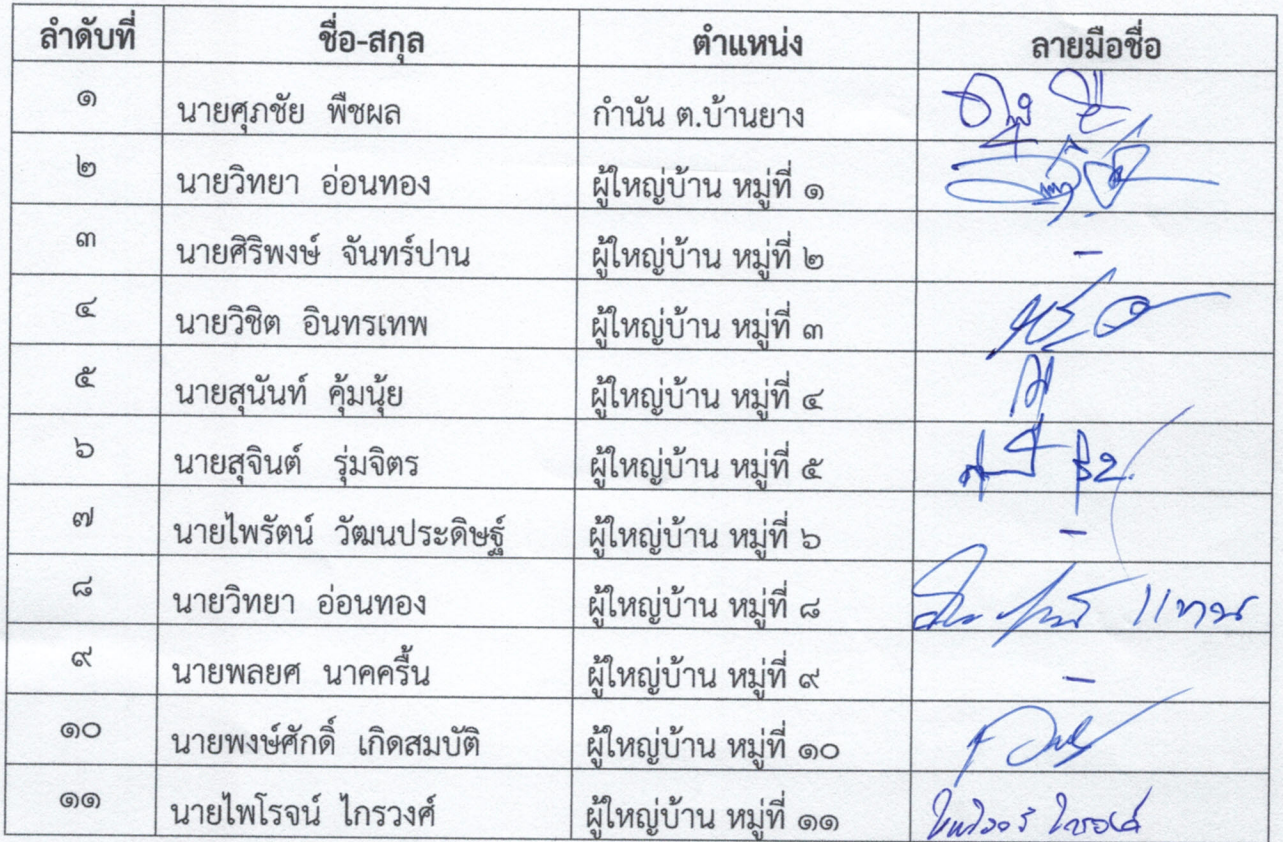 ลำดับที่ ชื่อ-สกุล ตำแหน่ง ลายมือชื่อ
๑ นายศุภชัย พืชผล กำนัน ต.บ้านยาง
๒ นายวิทยา อ่อนทอง ผู้ใหญ่บ้าน หมู่ที่ ๑
๓ นายศิริพงษ์ จันทร์ปาน ผู้ใหญ่บ้าน หมู่ที่ ๒ -
๔ นายวิชิต อินทรเทพ ผู้ใหญ่บ้าน หมู่ที่ ๓
๕ นายสุนันท์ คุ้มนุ้ย ผู้ใหญ่บ้าน หมู่ที่ ๔
๖ นายสุจินต์ รุ่มจิตร ผู้ใหญ่บ้าน หมู่ที่ ๕
๗ นายไพรัตน์ วัฒนประดิษฐ์ ผู้ใหญ่บ้าน หมู่ที่ ๖ -
๘ นายวิทยา อ่อนทอง ผู้ใหญ่บ้าน หมู่ที่ ๘ แทน
๙ นายพลยศ นาคครื้น ผู้ใหญ่บ้าน หมู่ที่ ๙ -
๑๐ นายพงษ์ศักดิ์ เกิดสมบัติ ผู้ใหญ่บ้าน หมู่ที่ ๑๐
๑๑ นายไพโรจน์ ไกรวงศ์ ผู้ใหญ่บ้าน หมู่ที่ ๑๑ ไพโรจน์ ไกรวงศ์